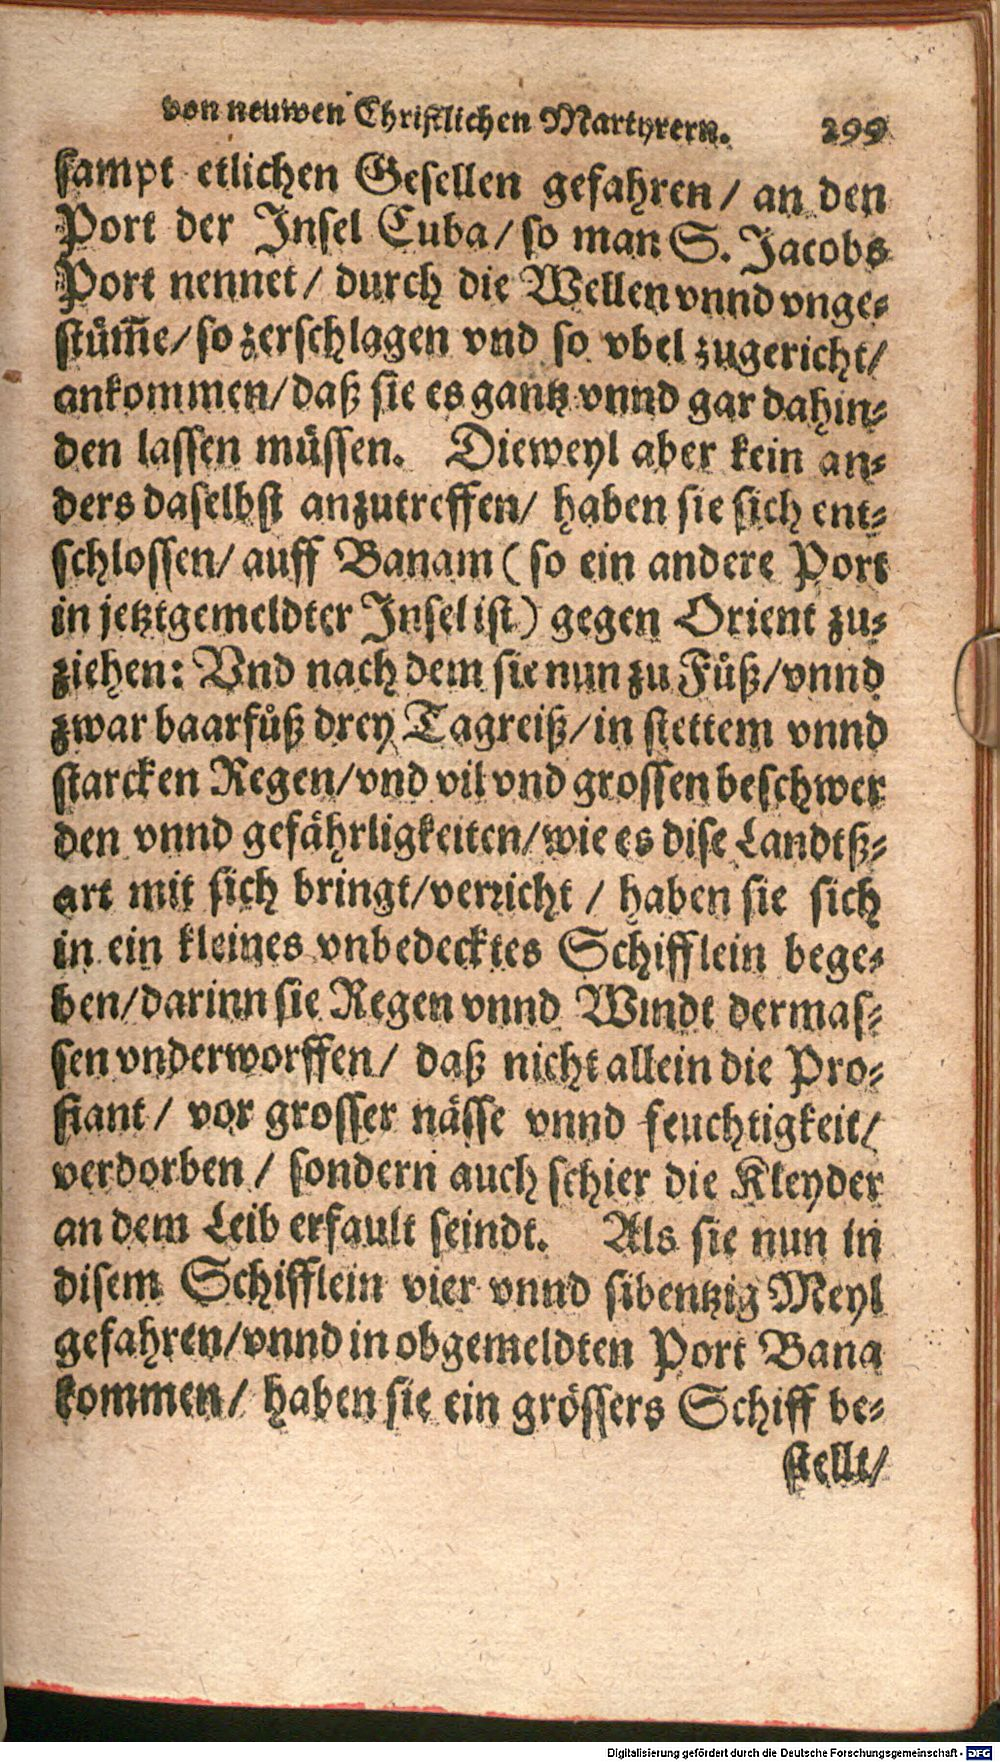 von neuwen Christlichen Martyrern. 299
sampt etlichen Gesellen gefahren / an den
Port der Insel Cuba / so man S. Jacobs
Port nennet / durch die Wellen vnnd vnge-
stüm̃e / so zerschlagen vnd so vbel zugericht /
ankommen / daß sie es gantz vnnd gar dahin-
den lassen müssen. Dieweyl aber kein an-
ders daselbst anzutreffen / haben sie sich ent-
schlossen / auff Banam ( so ein andere Port
in jetztgemeldter Insel ist ) gegen Orient zu-
ziehen: Vnd nach dem sie nun zu Fůß / vnnd
zwar baarfůß drey Tagreiß / in stettem vnnd
starcken Regen / vnd vil vnd grossen beschwer
den vnnd gefährligkeiten / wie es dise Landtß-
art mit sich bringt / verricht / haben sie sich
in ein kleines vnbedecktes Schifflein bege-
ben / darinn sie Regen vnnd Windt dermas-
sen vnderworffen / daß nicht allein die Pro-
fiant / vor grosser nässe vnnd feuchtigkeit /
verdorben / sondern auch schier die Kleyder
an dem Leib erfault seindt. Als sie nun in
disem Schifflein vier vnnd sibentzig Meyl
gefahren / vnnd in obgemeldten Port Bana
kommen / haben sie ein grössers Schiff be-
stellt /
Digitalisierung gefördert durch die Deutsche Forschungsgemeinschaft - DFG